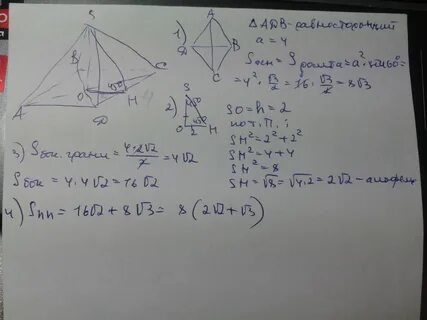 S
B
O
45°
C
4
H
A
D
1)
A
D
B
C
△ADB - равносторонний
a = 4
Sосн = Sромба = a² · sin60° =
= 4² · √3/2 = 16 · √3/2 = 8√3
2)
S
45°
45°
O
2
H
SO = h = 2
по т. П.:
SH² = 2² + 2²
SH² = 4 + 4
SH² = 8
SH = √8 = √4·2 = 2√2 - апофема
3) Sбок. грани = 4·2√2/2 = 4√2
Sбок = 4·4√2 = 16√2
4) Sпп = 16√2 + 8√3 = 8(2√2 + √3)